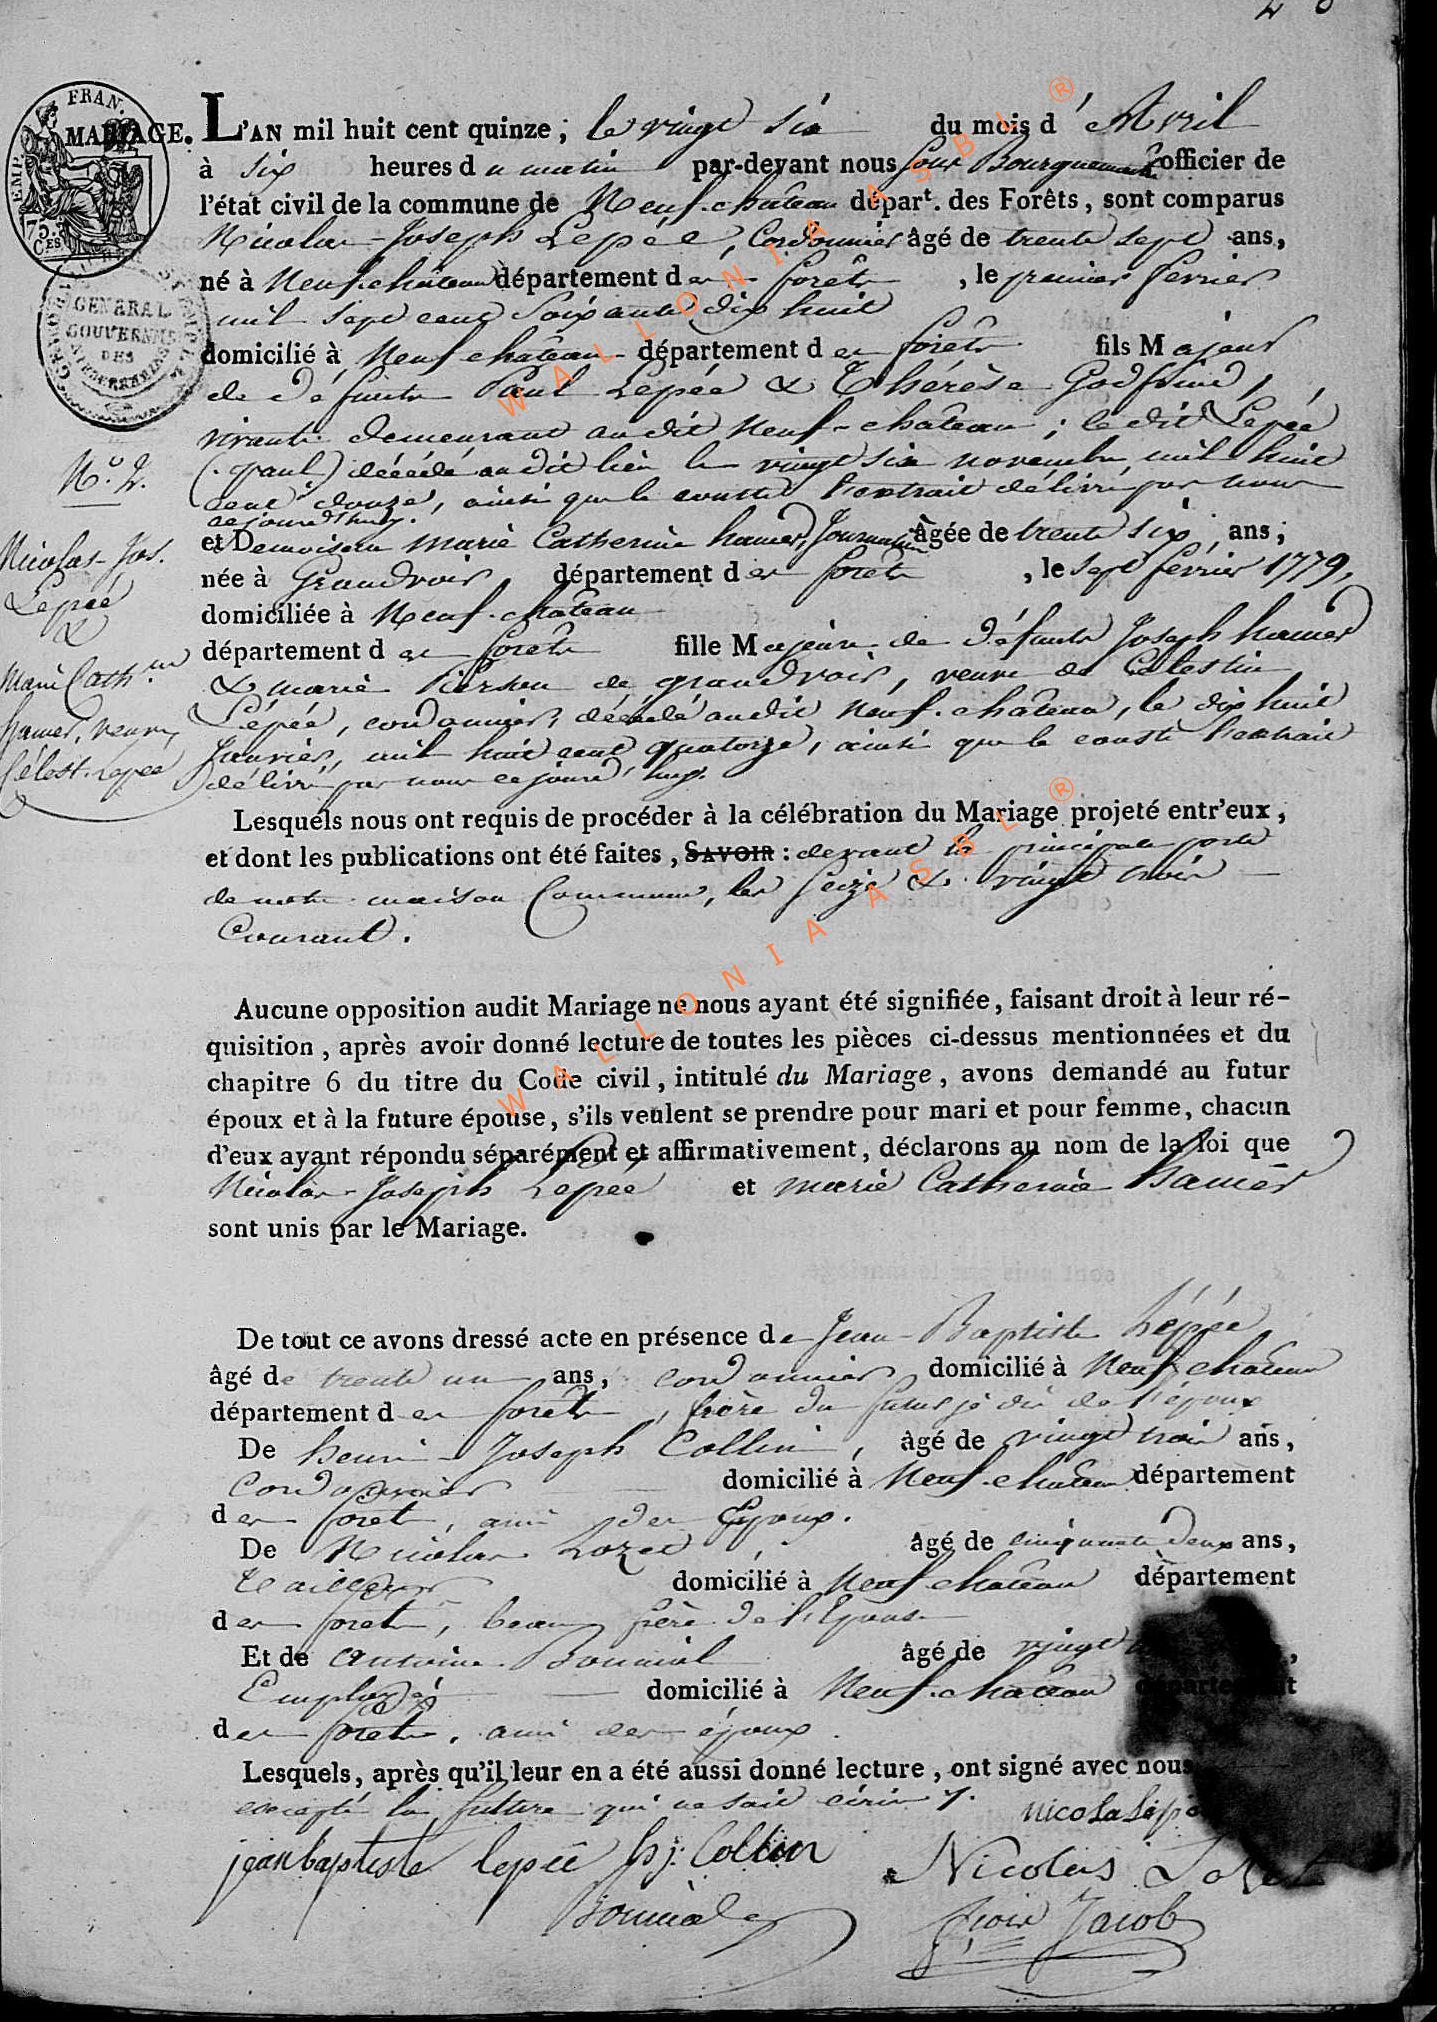 MARIAGE. L'AN mil huit cent quinze, le vingt six du mois d'Avril
à six heures du matin par-devant nous Sous Bourguemaitre officier de
l'état civil de la commune de Neuf-château départ. des Forêts, sont comparus
Nicolas-Joseph Lepée, Cordonnier âgé de trente sept ans,
né à Neuf-château département des forêts, le premier fevrier
mil sept cent soixante dix huit
domicilié à Neuf-château département des forêts fils Majeur
de défunts Paul Lepée & Thérèse Godfrind,
vivante demeurant audit Neuf-château; le dit Lepée
(paul) décédé audit lieu le vingt six novembre mil huit
cent douze, ainsi que le conste l'extrait délivré par nous
cejourd'huy.
et Demoiselle Marie Catherine hamer, Journalière âgée de trente six ans;
née à Grandvoir département des forêts, le sept fevrier 1779,
domiciliée à Neuf-château
département des forêts fille Majeure de défunts Joseph hamer
& marie Pierson de grandvoir, veuve de Célestin
Lépée, cordonnier, décédé audit Neuf-château, le dix huit
Janvier, mil huit cent quatorze, ainsi que le conste l'extrait
délivré par nous cejourd'huy.
N.º 2.
Nicolas-Jos.
Lepée
&
Marie Cath.ne
hamer, veuve
Célest. Lepée
Lesquels nous ont requis de procéder à la célébration du Mariage projeté entr'eux,
et dont les publications ont été faites, SAVOIR: devant la principale porte
de notre maison Commune, les seize & vingt trois
Courant.
Aucune opposition audit Mariage ne nous ayant été signifiée, faisant droit à leur ré-
quisition, après avoir donné lecture de toutes les pièces ci-dessus mentionnées et du
chapitre 6 du titre du Code civil, intitulé du Mariage, avons demandé au futur
époux et à la future épouse, s'ils veulent se prendre pour mari et pour femme, chacun
d'eux ayant répondu séparément et affirmativement, déclarons au nom de la loi que
Nicolas-Joseph Lepée et marie Catherine hamer
sont unis par le Mariage.
De tout ce avons dressé acte en présence de Jean-Baptiste Lépée
âgé de trente un ans, cordonnier domicilié à Neuf-château
département des forêts, frère du futur je dis de l'époux
De henri-Joseph Collin, âgé de vingt trois ans,
Cordonnier domicilié à Neuf-château département
des forêts, ami des Epoux.
De Nicolas Lozet, âgé de cinquante deux ans,
Tailleur domicilié à Neuf-château département
des forêts, beau frère de l'Epouse
Et de Antoine Bouniol âgé de vingt
Employé domicilié à Neuf-château département
des forêts, ami des époux
Lesquels, après qu'il leur en a été aussi donné lecture, ont signé avec nous
excepté la future qui ne sait écrire.
nicolas Lépé
jean baptiste lepée hj: Collin Nicolas Lozet
Bouniol Jacob
FRAN.
EMP.
75.
CES
GENERAL
GOUVERNM.
DES
NIEDERRHEINS
WALLONIA ASBL ®
WALLONIA ASBL ®